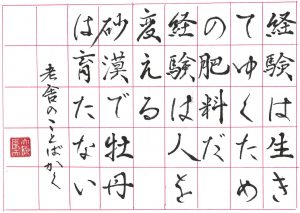 経験は生き
てゆくため
の肥料だ
経験は人を
変える
砂漠で牡丹
は育たない
老舎のことばかく